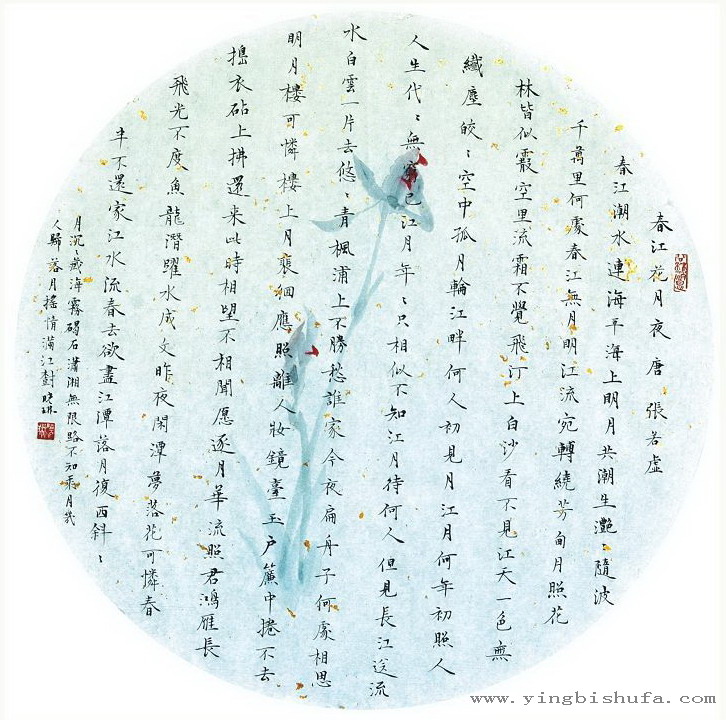 春江花月夜 唐 張若虛
春江潮水連海平海上明月共潮生灩〻隨波
千萬里何處春江無月明江流宛轉繞芳甸月照花
林皆似霰空里流霜不覺飛汀上白沙看不見江天一色無
纖塵皎〻空中孤月輪江畔何人初見月江月何年初照人
人生代〻無窮已江月年〻只相似不知江月待何人但見長江送流
水白雲一片去悠〻青楓浦上不勝愁誰家今夜扁舟子何處相思
明月樓可憐樓上月裵徊應照離人妝鏡臺玉戶簾中捲不去
搗衣砧上拂還来此時相望不相聞愿逐月華流照君鴻雁長
飛光不度魚龍潛躍水成文昨夜閑潭夢落花可憐春
半不還家江水流春去欲盡江潭落月復西斜〻
月沉〻藏海霧碣石瀟湘無限路不知乘月幾
人歸落月搖情滿江樹
www.yingbishufa.com